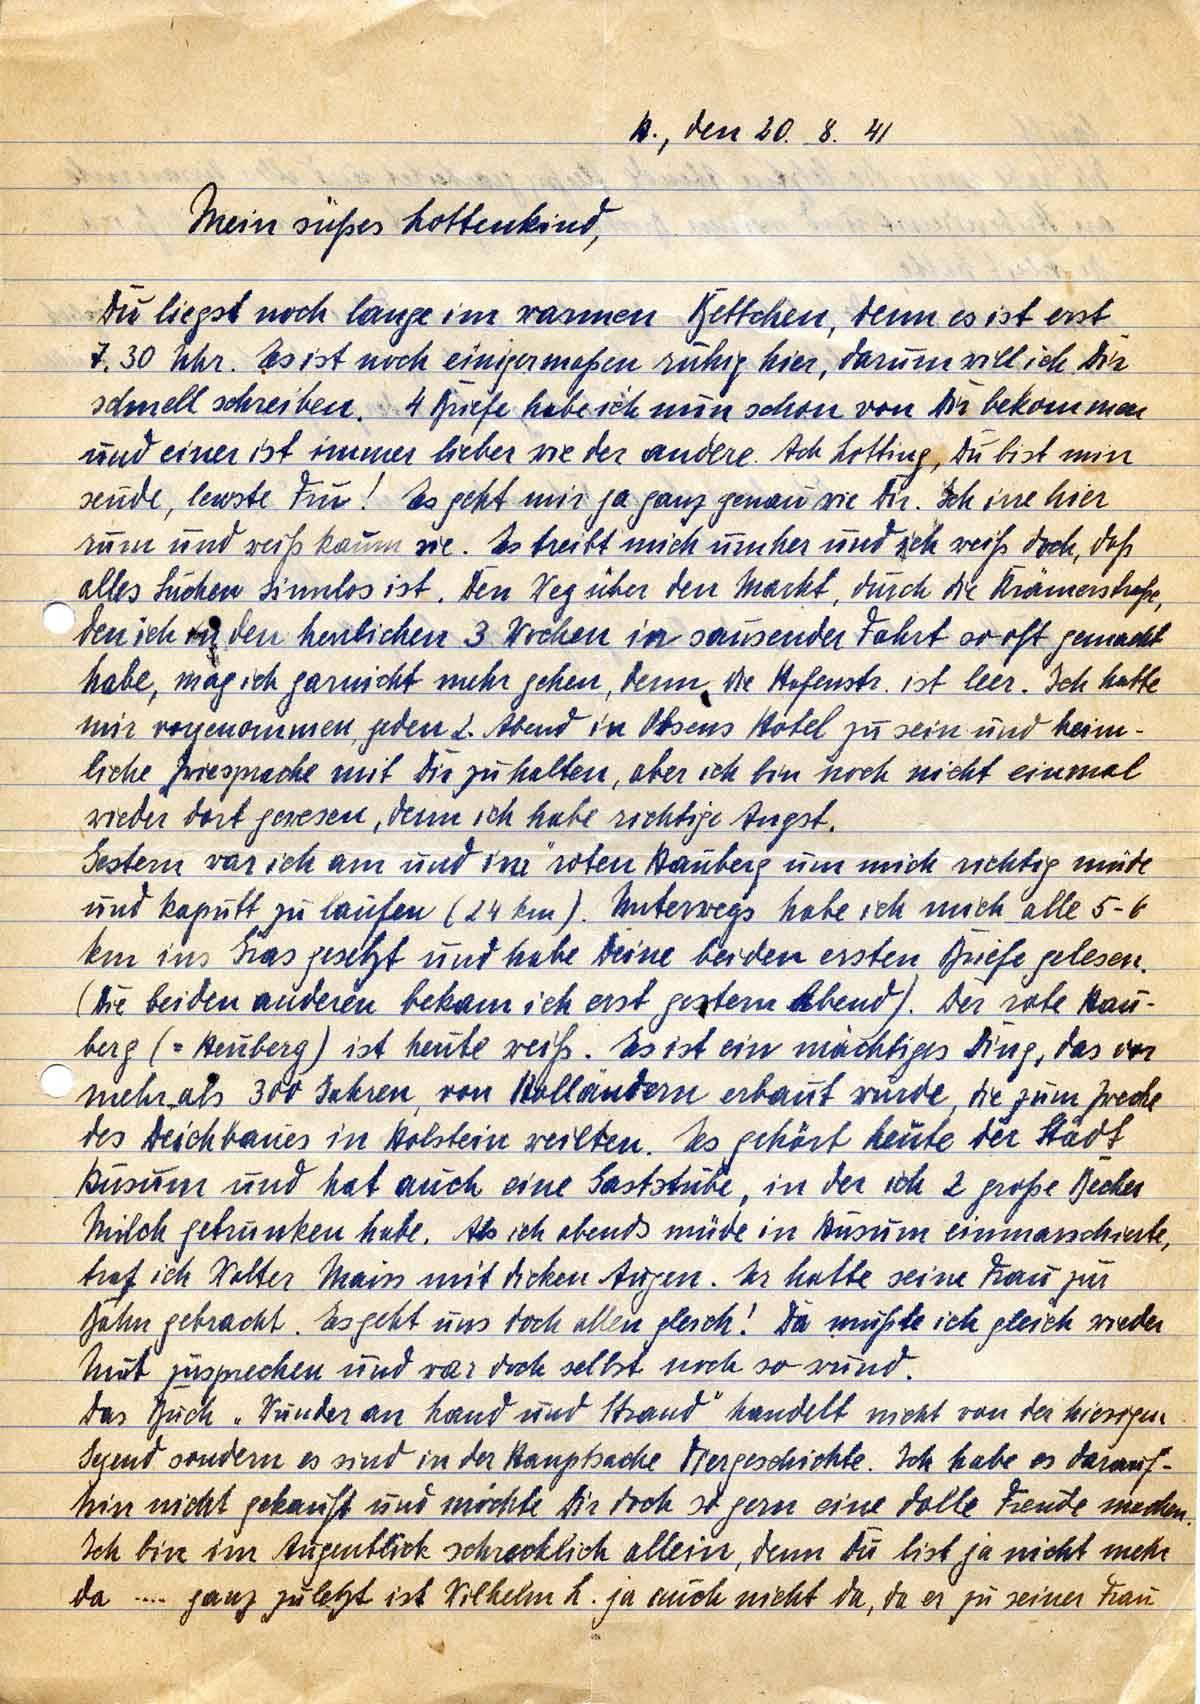 H., den 20. 8. 41
Mein süßes Lottenkind,
Du liegst noch lange im warmen Bettchen, denn es ist erst
7.30 Uhr. Es ist noch einigermaßen ruhig hier, darum will ich Dir
schnell schreiben. 4 Briefe habe ich nun schon von Dir bekommen
und einer ist immer lieber wie der andere. Ach Lotting, Du bist min
seude, lewste Fru! Es geht mir ja ganz genau wie Dir. Ich irre hier
rum und weiß kaum wie. Es treibt mich umher und ich weiß doch, daß
alles Suchen sinnlos ist. Den Weg über den Markt, durch die Krämerstraße,
den ich in den herrlichen 3 Wochen in sausender Fahrt so oft gemacht
habe, mag ich garnicht mehr gehen, denn die Hafenstr. ist leer. Ich hatte
mir vorgenommen, jeden 2. Abend in Obsens Hotel zu sein und heim-
liche Zwiesprache mit Dir zu halten, aber ich bin noch nicht einmal
wieder dort gewesen, denn ich habe richtige Angst.
Gestern war ich am und im "roten Hauberg um mich richtig müde
und kaputt zu laufen (24 km). Unterwegs habe ich mich alle 5-6
km ins Gras gesetzt und habe Deine beiden ersten Briefe gelesen.
(Die beiden anderen bekam ich erst gestern Abend). Der rote Hau-
berg (= Heuberg) ist heute weiß. Es ist ein mächtiges Ding, das vor
mehr als 300 Jahren von Holländern erbaut wurde, die zum Zwecke
des Deichbaues in Holstein weilten. Es gehört heute der Stadt
Husum und hat auch eine Gaststube, in der ich 2 große Becher
Milch getrunken habe. Als ich abends müde in Husum einmarschierte,
traf ich Walter Mains mit dicken Augen. Er hatte seine Frau zur
Bahn gebracht. Es geht uns doch allen gleich! Da mußte ich gleich wieder
Mut zusprechen und war doch selbst noch so wund.
Das Buch „Wunder an Land und Strand" handelt nicht von der hiesigen
Gegend sondern es sind in der Hauptsache Tiergeschichte. Ich habe es darauf-
hin nicht gekauft und möchte Dir doch so gern eine dolle Freude machen.
Ich bin im Augenblick schrecklich allein, denn Du bist ja nicht mehr
da .... ganz zuletzt ist Wilhelm L. ja auch nicht da, da er zu seiner Frau